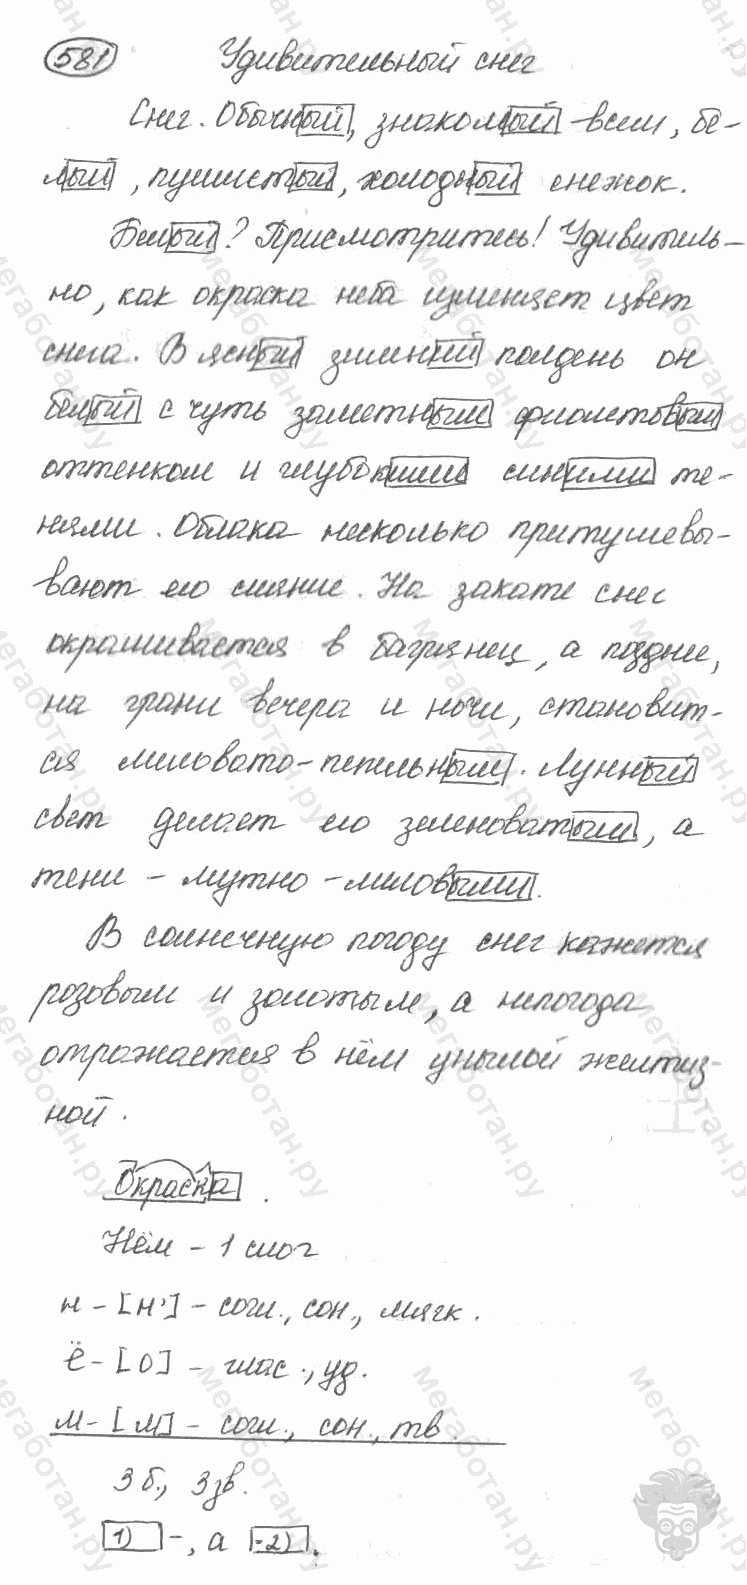 581 Удивительный снег
Снег. Обычный, знакомый всем, бе-
лый, пушистый, холодный снежок.
Белый? Присмотритесь! Удивитель-
но, как окраска неба изменяет цвет
снега. В ясный зимний полдень он
белый с чуть заметным фиолетовым
оттенком и глубокими синими те-
нями. Облака несколько притушевы-
вают его сияние. На закате снег
окрашивается в багрянец, а позднее,
на грани вечера и ночи, становит-
ся лиловато-пепельным. Лунный
свет делает его зеленоватым, а
тени - мутно-лиловыми.
В солнечную погоду снег кажется
розовым и золотым, а непогода
отражается в нём унылой желтиз-
ной.
Окраска.
Нём - 1 слог
н - [н'] - согл., сон., мягк.
ё - [о] - глас., уд.
м - [м] - согл., сон., тв.
3 б., 3 зв.
1) -, а -2).
мегаботан.ру